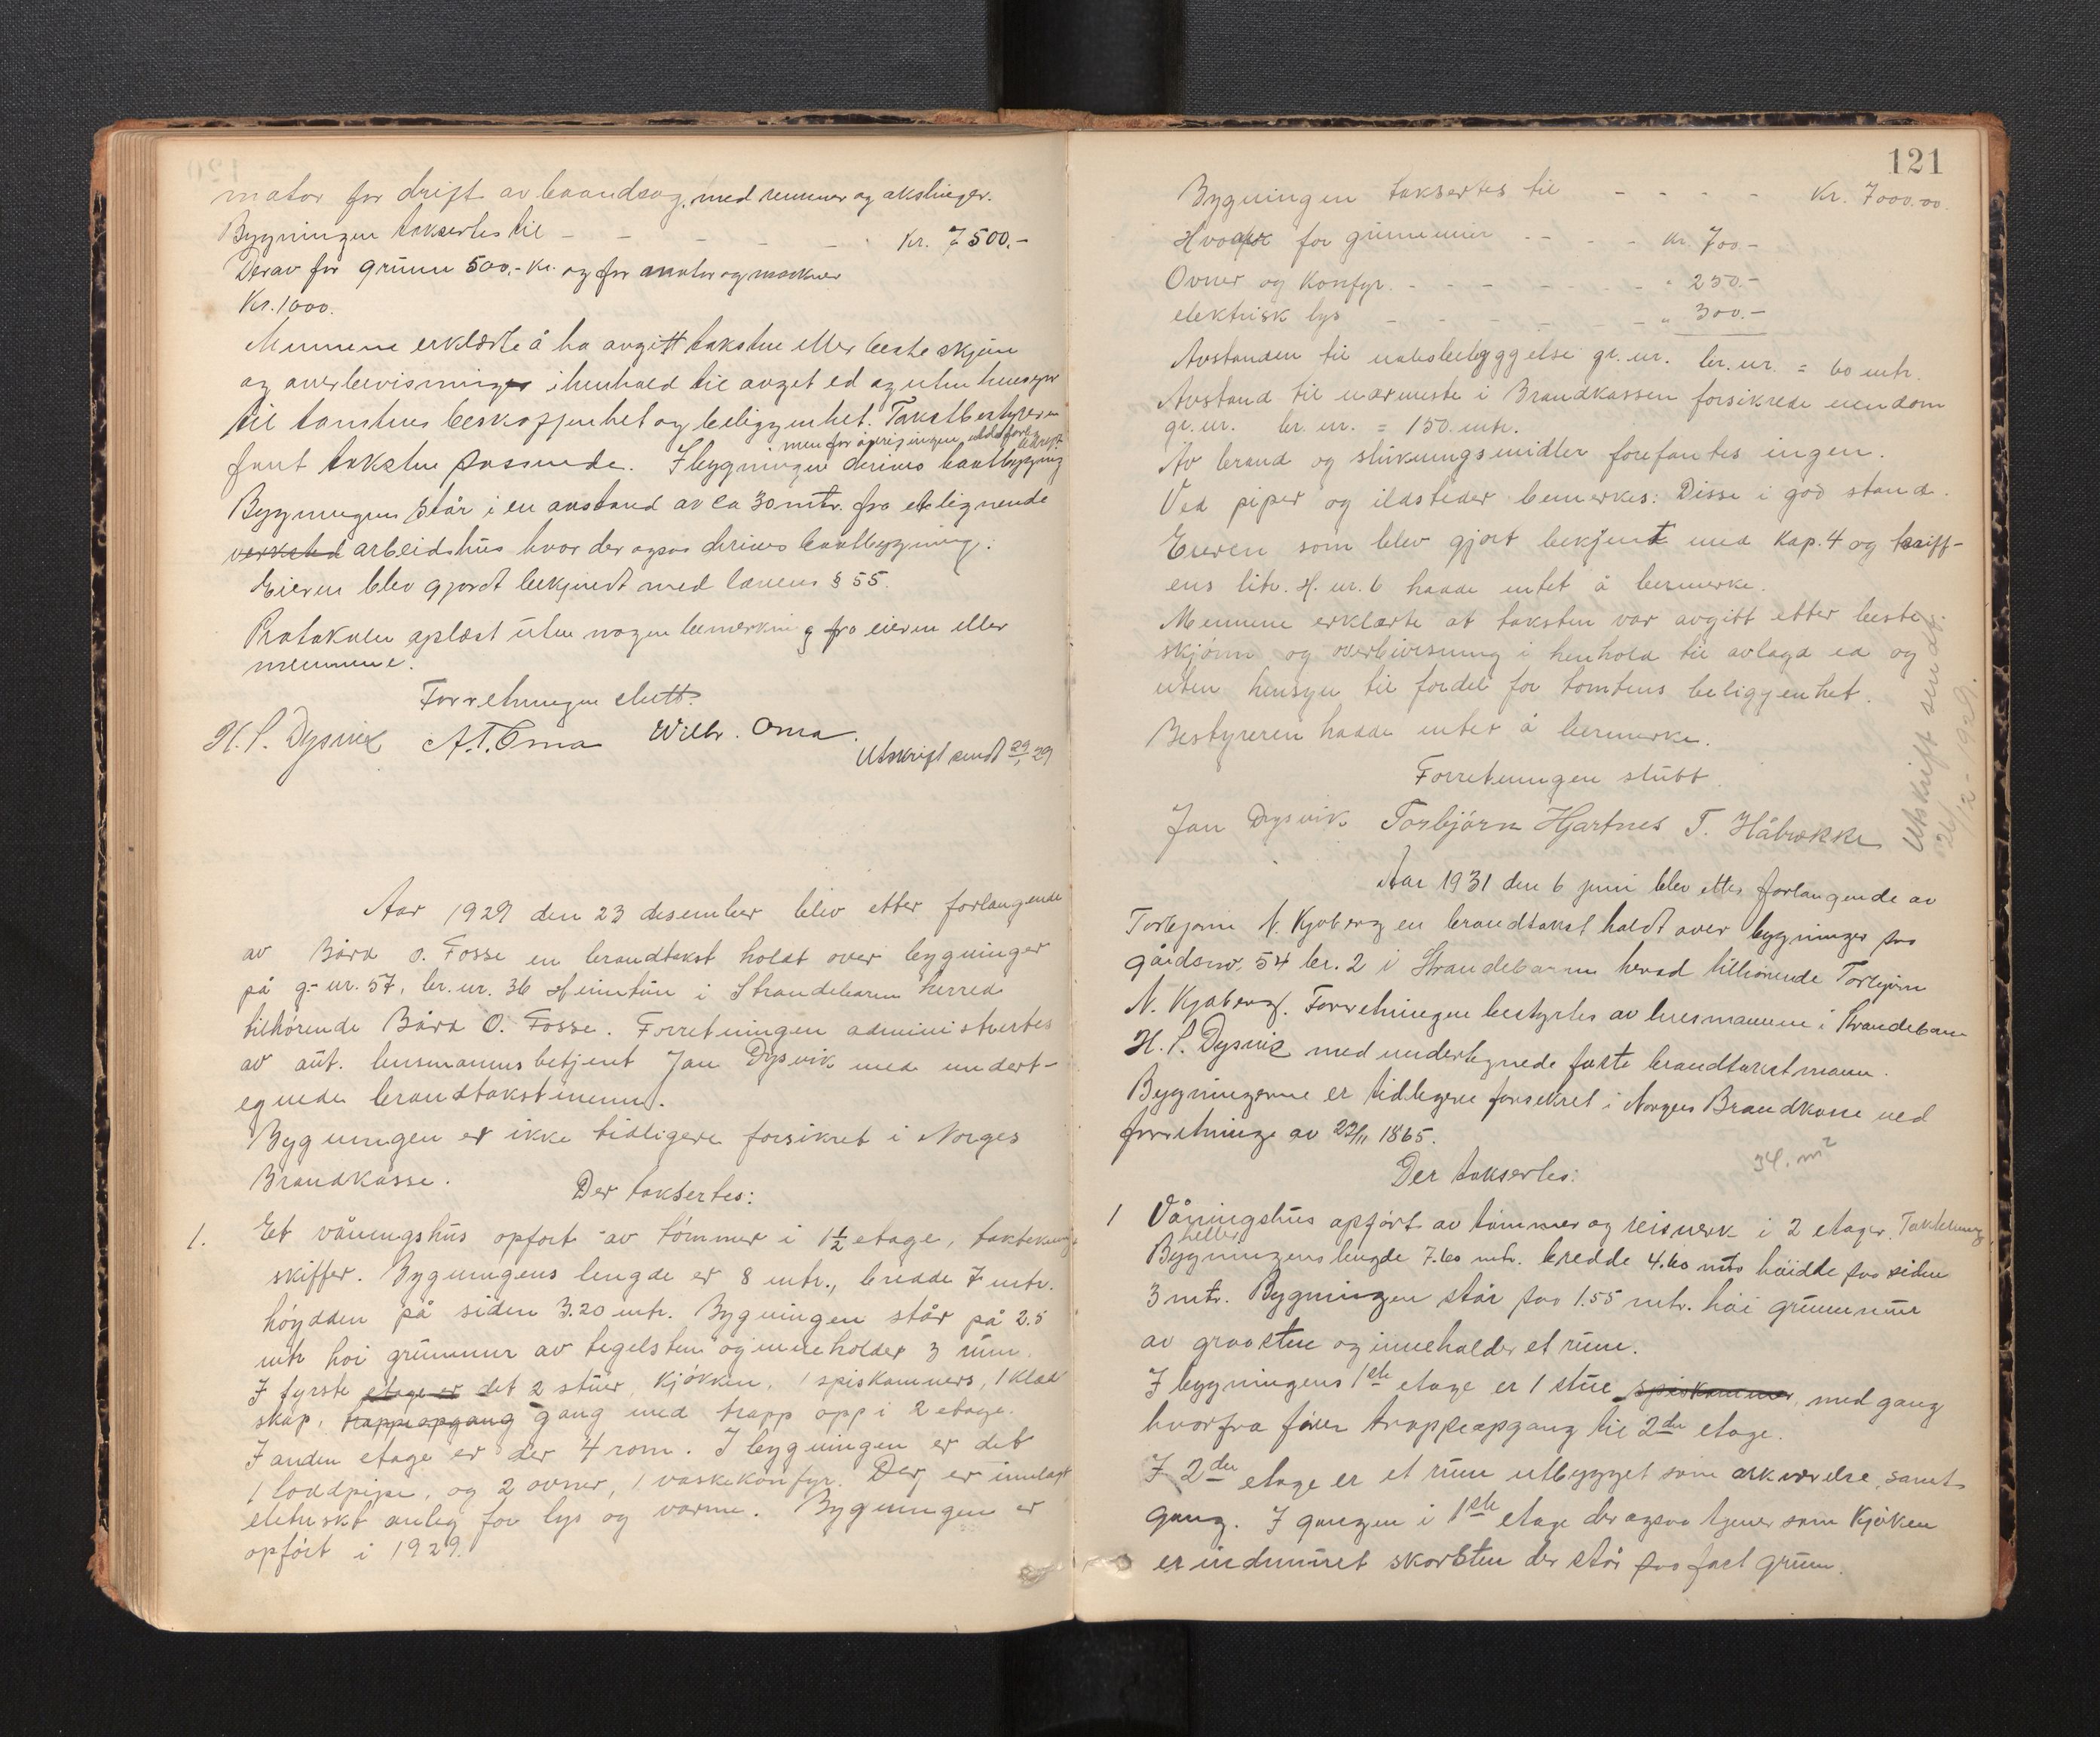 motor for drift av baandsag, med remmer og akslinger.
Bygningen taksertes til – – – – – – Kr. 7500.-
Derav for grunn 500.- kr. og for motor og maskiner
Kr. 1000.
Mennene erklærte å ha avgitt taksten etter beste skjønn
og overbevisning i henhold til avget ed og uten hensyn
til tomtens beskaffenhet og beliggenhet. Takstbestyreren
men for øvrig ingen ildsfarlig bedrift.
fant taksten passende. I bygningen drives baatbygging
Bygningen står i en avstand av ca 30 mtr. fra et lignende
verksted arbeidshus hvor der ogsaa drives baatbygning.
Eieren blev gjordt bekjendt med lovens § 55.
Protokolen oplæst uten nogen bemerkning fra eieren eller
mennene.
Forretningen slutt.
H. S. Dysvik A. T. Oma Wilh. Oma.
Utskrift sendt 29/1 29
Aar 1929 den 23 desember blev etter forlangende
av Bård O. Fosse en brandtakst holdt over bygninger
på g.- nr. 57, br. nr. 36 Heimtun i Strandebarm herred
tilhørende Bård O. Fosse. Forretningen administrertes
av aut. lensmannsbetjent Jan Dysvik med undert-
egnede brandtakstmenn.
Bygningen er ikke tidligere forsikret i Norges
Brandkasse.
Der taksertes:
1. Et våningshus opført av tømmer i 1½ etage, taktekning
skiffer. Bygningens lengde er 8 mtr., bredde 7 mtr.
høydden på siden 3.20 mtr. Bygningen står på 2.5
mtr høi grunnmur av tegelsten og inneholder 3 rum.
I fyrste etage er det 2 stuer, kjøkken, 1 spiskammers, 1 klæd
skap, trappeopgang gang med trapp opp i 2 etage.
I anden etage er der 4 rom. I bygningen er det
1 loddpipe, og 2 ovner, 1 vaskekonfyr. Der er innlagt
eletriskt anleg for lys og varme. Bygningen er
opført i 1929.
121
Bygningen taksertes til – – – – Kr. 7000.00
Hvorav for grunnmur – – – – kr 700.–
Ovner og konfyr. – – – – – – " 250.–
elektrisk lys – – – – – – " 300.–
Avstanden til nabobebyggelse gr. nr. br. nr. = 60 mtr.
Avstand til nærmeste i Brandkassen forsikrede eiendom
gr. nr. br. nr. = 150 mtr.
Av brand og slukningsmidler forefantes ingen.
Ved piper og ildsteder bemerkes: Disse i god stand.
Eieren som blev gjort bekjent med Kap. 4 og tariff-
ens litr. H. nr. 6 hadde intet å bemerke.
Mennene erklærte at taksten var avgitt etter beste
skjønn og overbevisning i henhold til avlagd ed og
uten hensyn til fordel for tomtens beliggenhet.
Bestyreren hadde intet å bemerke.
Forretningen slutt
Jan Dysvik Torbjørn Hjartnes T. Håbrekke
Utskrift sendt
26/12 - 1929.
Aar 1931 den 6 juni blev etter forlangende av
Torbjørn N. Kjoberg en brandtakst holdt over bygninger paa
gårdsnr. 54 br. 2 i Strandebarm herad tilhørende Torbjørn
N. Kjoberg. Forretningen bestyrtes av lensmannen i Strandebarm
H. S. Dysvik med undertegnede faste brandtakstmenn.
Bygningerne er tidligere forsikret i Norges Brandkasse ved
forretninge av 29/11 1865.
34. m²
Der taksertes:
1 Våningshus opført av tømmer og reisverk i 2 etager. Taktekning
heller
Bygningens lengde 7.60 mtr. bredde 4.60 mtr høidde paa siden
3 mtr. Bygningen står paa 1.55 mtr. høi grunnmur
av graasten og inneholder et rum.
I bygningens 1ste etage er 1 stue spiskammer, med gang
hvorfra fører trappeopgang til 2den etage.
I 2den etage er et rum utbygget som arkværelse, samt
gang. I gangen i 1ste etage der ogsaa tjener som kjøken
er indmuret skorsten der står paa fast grunn.